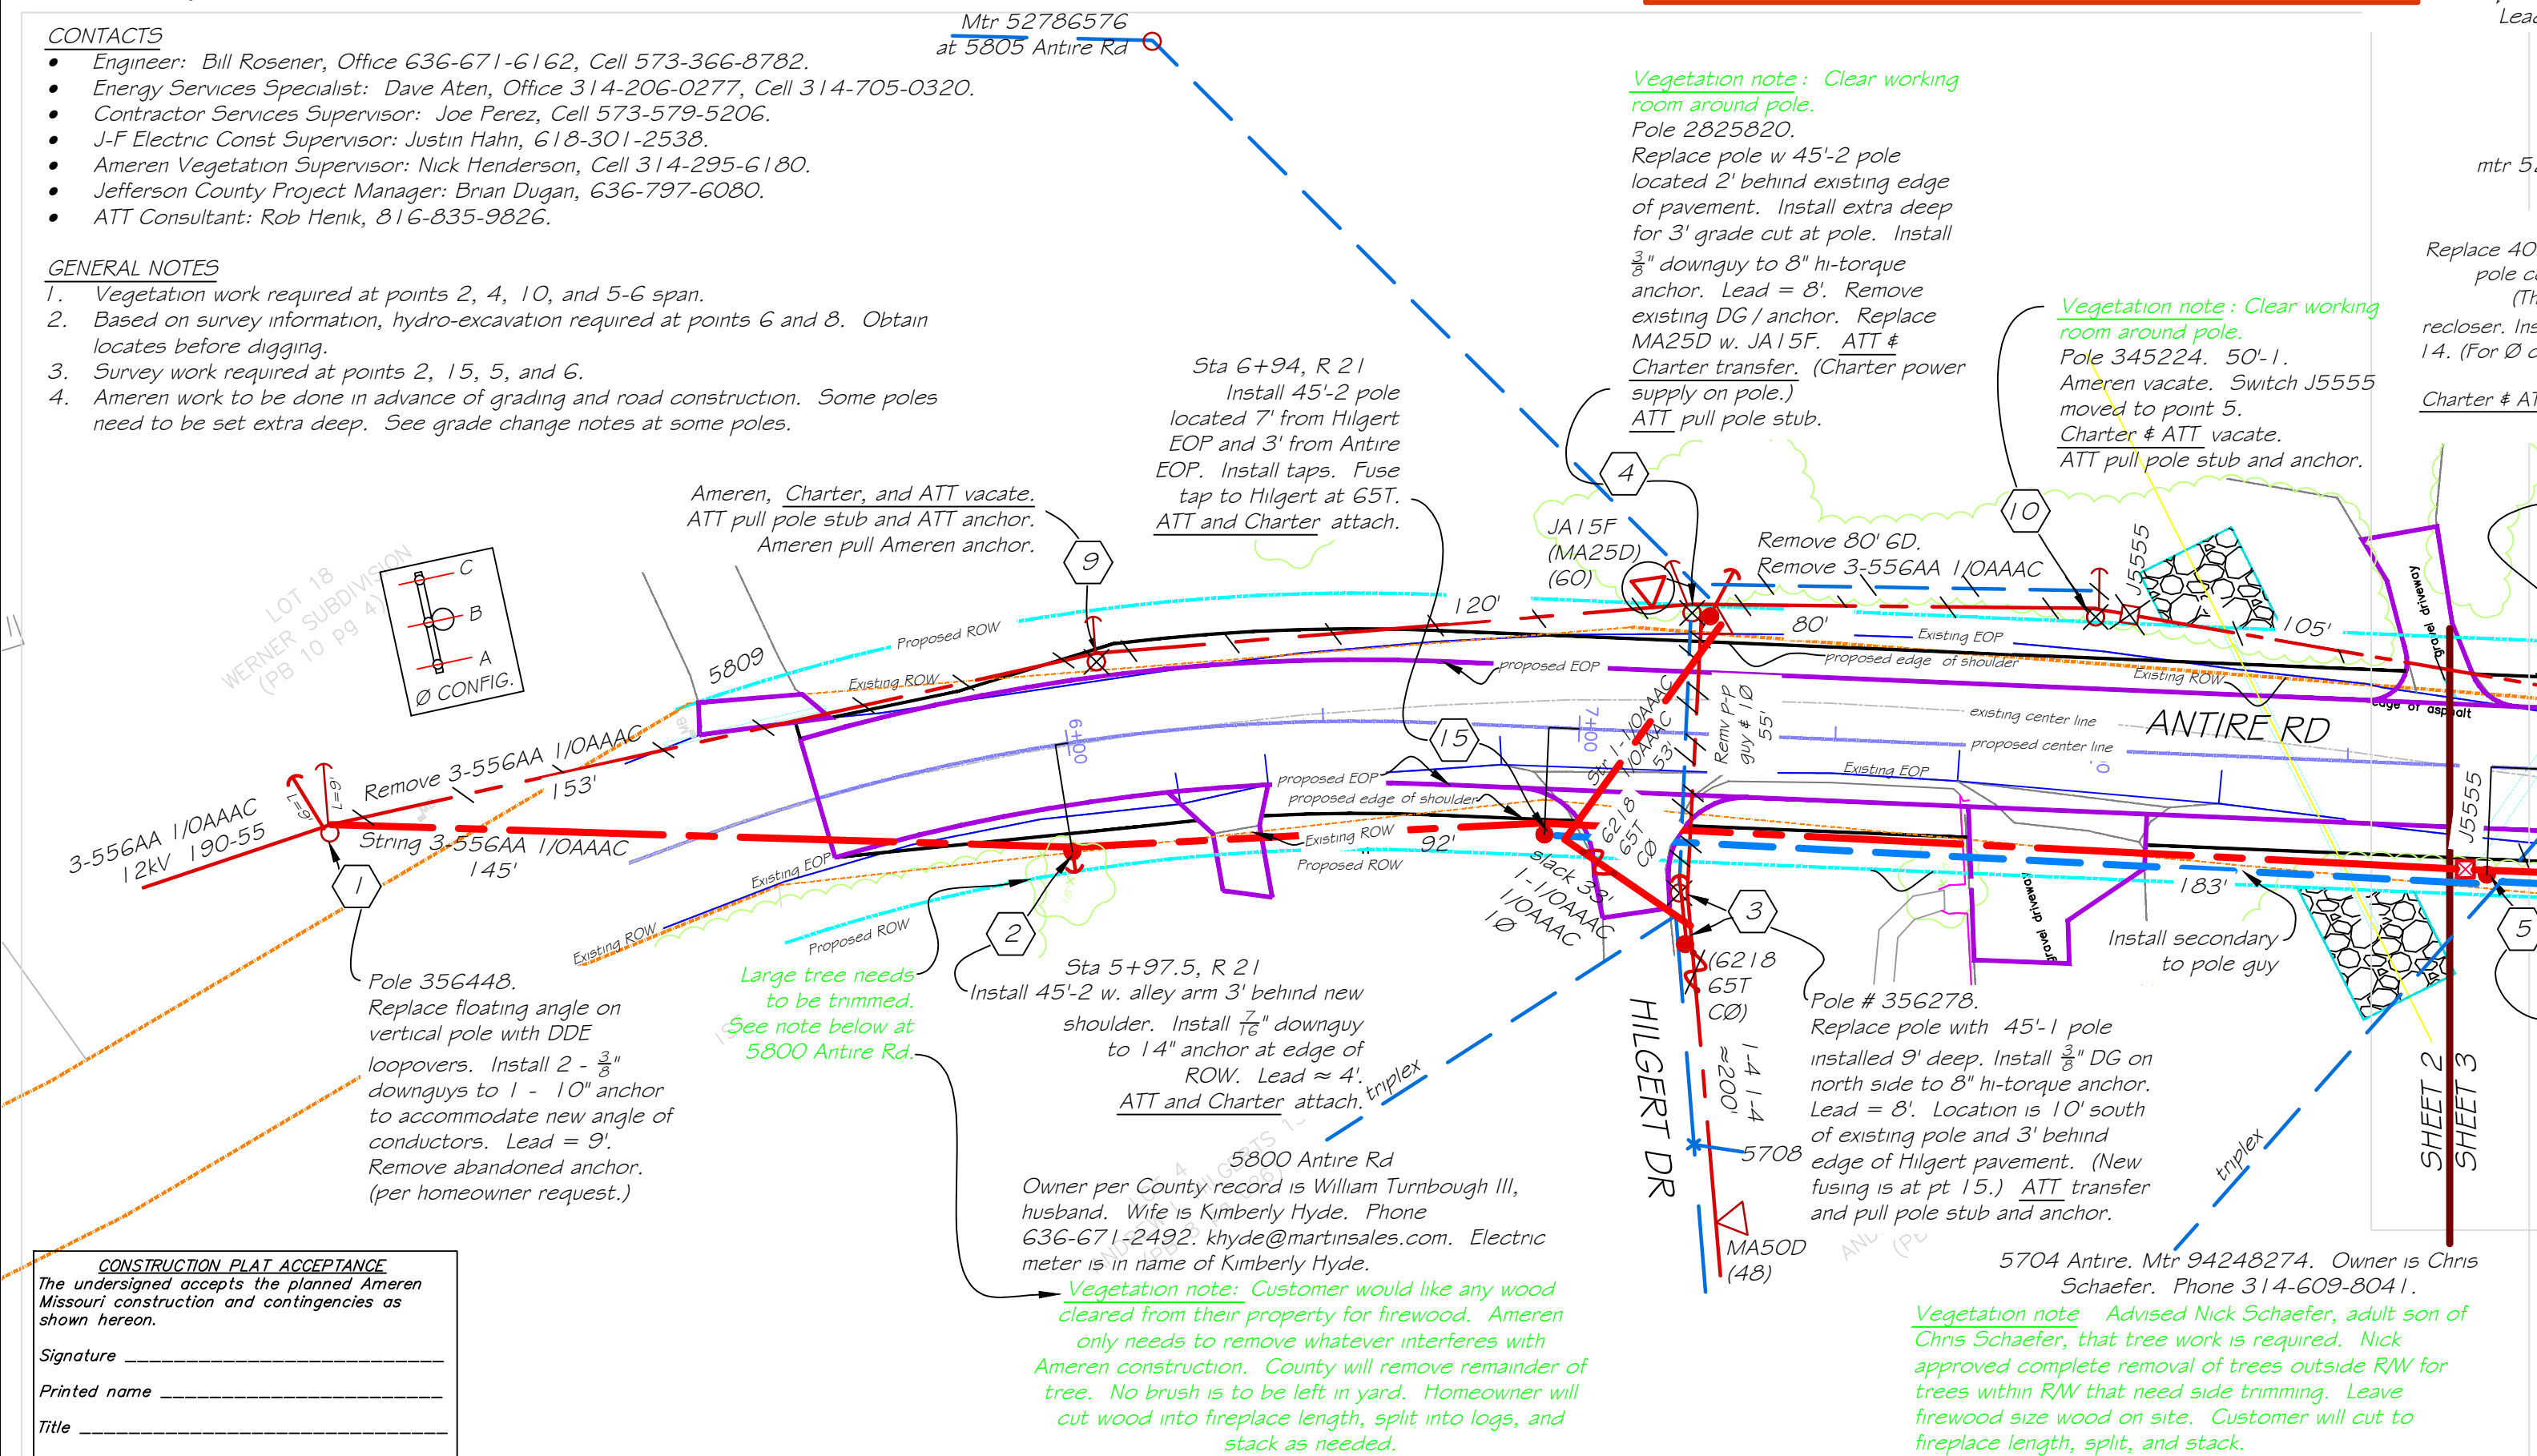 CONTACTS
• Engineer: Bill Rosener, Office 636-671-6162, Cell 573-366-8782.
• Energy Services Specialist: Dave Aten, Office 314-206-0277, Cell 314-705-0320.
• Contractor Services Supervisor: Joe Perez, Cell 573-579-5206.
• J-F Electric Const Supervisor: Justin Hahn, 618-301-2538.
• Ameren Vegetation Supervisor: Nick Henderson, Cell 314-295-6180.
• Jefferson County Project Manager: Brian Dugan, 636-797-6080.
• ATT Consultant: Rob Henik, 816-835-9826.
GENERAL NOTES
1. Vegetation work required at points 2, 4, 10, and 5-6 span.
2. Based on survey information, hydro-excavation required at points 6 and 8. Obtain
locates before digging.
3. Survey work required at points 2, 15, 5, and 6.
4. Ameren work to be done in advance of grading and road construction. Some poles
need to be set extra deep. See grade change notes at some poles.
Mtr 52786576
at 5805 Antire Rd
Vegetation note: Clear working
room around pole.
Pole 2825820.
Replace pole w 45'-2 pole
located 2' behind existing edge
of pavement. Install extra deep
for 3' grade cut at pole. Install
3/8" downguy to 8" hi-torque
anchor. Lead = 8'. Remove
existing DG / anchor. Replace
MA25D w. JA15F. ATT &
Charter transfer. (Charter power
supply on pole.)
ATT pull pole stub.
Vegetation note: Clear working
room around pole.
Pole 345224. 50'-1.
Ameren vacate. Switch J5555
moved to point 5.
Charter & ATT vacate.
ATT pull pole stub and anchor.
Lead
mtr 52
Replace 40
recloser. Ins
Charter & AT
Sta 6+94, R 21
Install 45'-2 pole
located 7' from Hilgert
EOP and 3' from Antire
EOP. Install taps. Fuse
tap to Hilgert at 65T.
ATT and Charter attach.
Ameren, Charter, and ATT vacate.
ATT pull pole stub and ATT anchor.
Ameren pull Ameren anchor.
LOT 18
WERNER SUBDIVISION
(PB 10 pg 4)
C
B
A
Ø CONFIG.
9
4
10
JA15F
(MA25D)
(60)
Remove 80' 6D.
Remove 3-556AA 1/0AAAC
J5555
120'
80'
105'
gravel driveway
Proposed ROW
5809
Existing ROW
proposed EOP
Existing EOP
proposed edge of shoulder
Existing ROW
edge of asphalt
existing center line
ANTIRE RD
proposed center line
6+00
7+00
15
Str 1-1/0AAAC
1/0AAAC
53'
Remv p-p
guy & 1Ø
55'
Remove 3-556AA 1/0AAAC
153'
L=9'
L=9'
3-556AA 1/0AAAC
12kV 190-55
String 3-556AA 1/0AAAC
145'
proposed EOP
proposed edge of shoulder
Existing EOP
Existing ROW
Proposed ROW
92'
6218
65T
CØ
slack 33'
1-1/0AAAC
1/0AAAC
1Ø
J5555
183'
gravel driveway
Install secondary
to pole guy
1
2
3
5
Existing EOP
Existing ROW
Proposed ROW
Pole 356448.
Replace floating angle on
vertical pole with DDE
loopovers. Install 2 - 3/8"
downguys to 1 - 10" anchor
to accommodate new angle of
conductors. Lead = 9'.
Remove abandoned anchor.
(per homeowner request.)
Large tree needs
to be trimmed.
See note below at
5800 Antire Rd.
Sta 5+97.5, R 21
Install 45'-2 w. alley arm 3' behind new
shoulder. Install 7/16" downguy
to 14" anchor at edge of
ROW. Lead ≈ 4'.
ATT and Charter attach.
triplex
HILGERT DR
(6218
65T
CØ)
1-4 1-4
≈200'
5708
MA50D
(48)
Pole # 356278.
Replace pole with 45'-1 pole
installed 9' deep. Install 3/8" DG on
north side to 8" hi-torque anchor.
Lead = 8'. Location is 10' south
of existing pole and 3' behind
edge of Hilgert pavement. (New
fusing is at pt 15.) ATT transfer
and pull pole stub and anchor.
triplex
SHEET 2
SHEET 3
5800 Antire Rd
Owner per County record is William Turnbough III,
husband. Wife is Kimberly Hyde. Phone
636-671-2492. khyde@martinsales.com. Electric
meter is in name of Kimberly Hyde.
Vegetation note: Customer would like any wood
cleared from their property for firewood. Ameren
only needs to remove whatever interferes with
Ameren construction. County will remove remainder of
tree. No brush is to be left in yard. Homeowner will
cut wood into fireplace length, split into logs, and
stack as needed.
5704 Antire. Mtr 94248274. Owner is Chris
Schaefer. Phone 314-609-8041.
Vegetation note Advised Nick Schaefer, adult son of
Chris Schaefer, that tree work is required. Nick
approved complete removal of trees outside R/W for
trees within R/W that need side trimming. Leave
firewood size wood on site. Customer will cut to
fireplace length, split, and stack.
CONSTRUCTION PLAT ACCEPTANCE
The undersigned accepts the planned Ameren
Missouri construction and contingencies as
shown hereon.
Signature
Printed name
Title